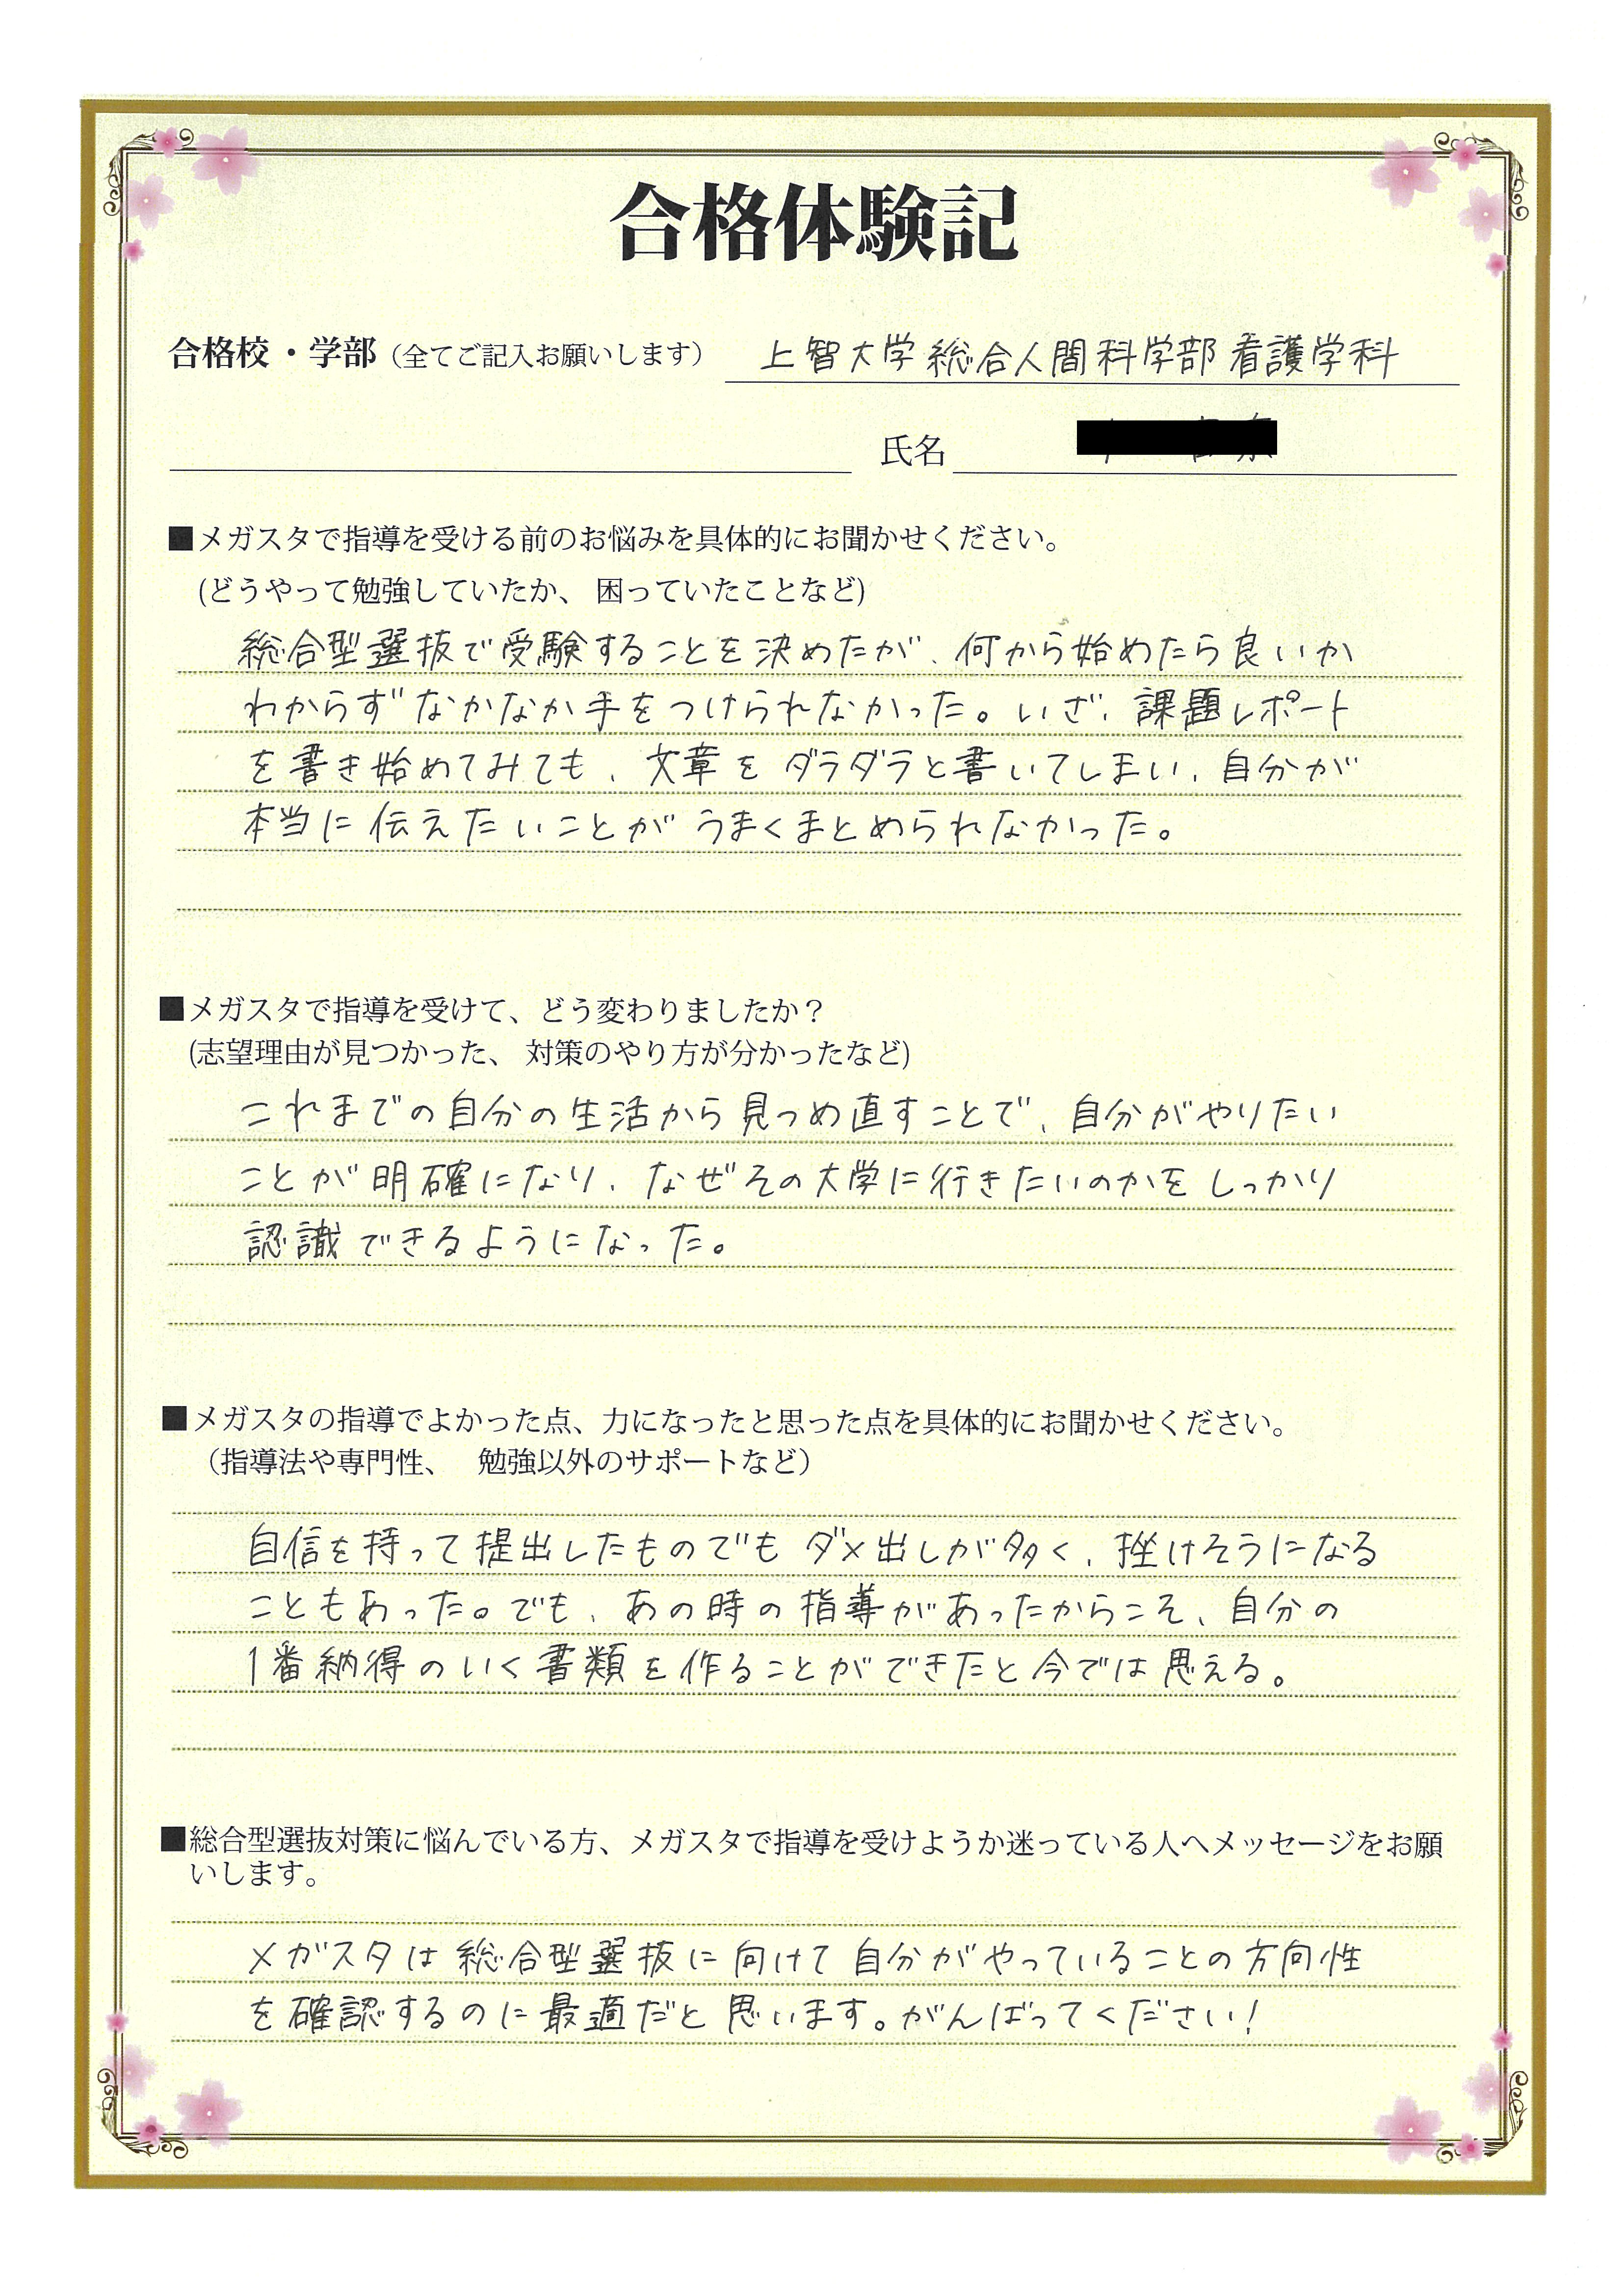 合格体験記
合格校・学部（全てご記入お願いします） 上智大学総合人間科学部看護学科
氏名
■メガスタで指導を受ける前のお悩みを具体的にお聞かせください。
(どうやって勉強していたか、 困っていたことなど)
総合型選抜で受験することを決めたが、何から始めたら良いか
わからずなかなか手をつけられなかった。いざ、課題レポート
を書き始めてみても、文章をダラダラと書いてしまい、自分が
本当に伝えたいことがうまくまとめられなかった。
■メガスタで指導を受けて、どう変わりましたか？
(志望理由が見つかった、 対策のやり方が分かったなど)
これまでの自分の生活から見つめ直すことで、自分がやりたい
ことが明確になり、なぜその大学に行きたいのかをしっかり
認識できるようになった。
■メガスタの指導でよかった点、力になったと思った点を具体的にお聞かせください。
（指導法や専門性、 勉強以外のサポートなど）
自信を持って提出したものでもダメ出しが多く、挫けそうになる
こともあった。でも、あの時の指導があったからこそ、自分の
1番納得のいく書類を作ることができたと今では思える。
■総合型選抜対策に悩んでいる方、メガスタで指導を受けようか迷っている人へメッセージをお願
いします。
メガスタは総合型選抜に向けて自分がやっていることの方向性
を確認するのに最適だと思います。がんばってください！